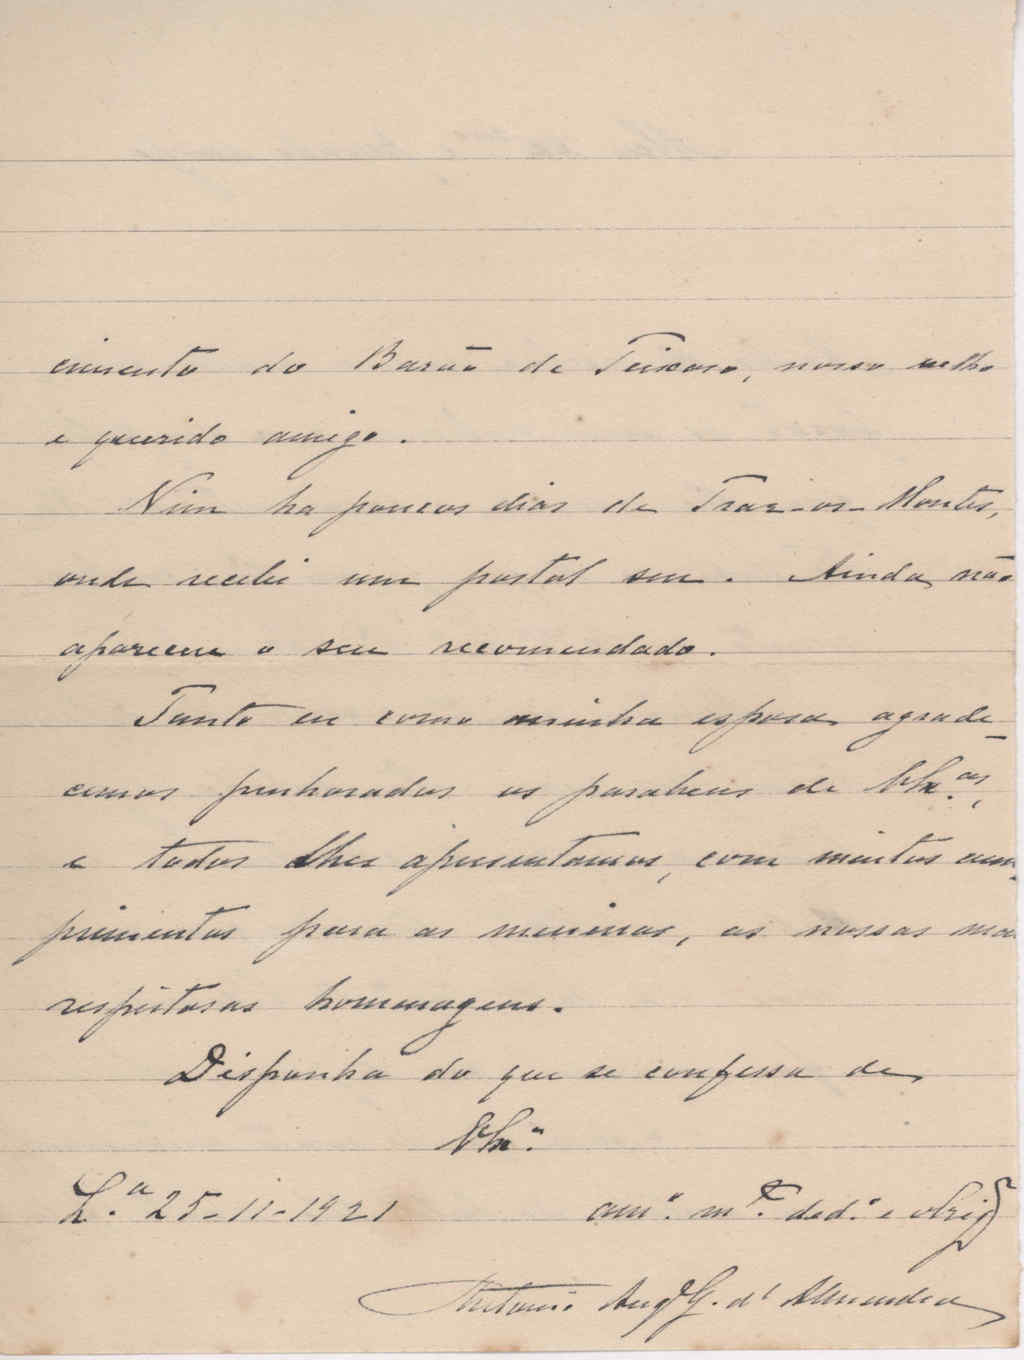 cimento do Barão de Teixoso, nosso velho
e querido amigo.
Vim ha poucos dias de Traz-os-Montes,
onde recebi um postal seu. Ainda não
apareceu o seu recomendado.
Tanto eu como minha esposa agrade-
cemos penhorados os parabens de V. Ex.as,
e todos lhes apresentamos, com muitos cum-
primentos para as meninas, as nossas mais
respeitosas homenagens.
Disponha do que se confessa de
V. Ex.a
L.a 25-11-1921 am.o m.to ded.o e obrig
Antonio Aug.to G. d'Almendra